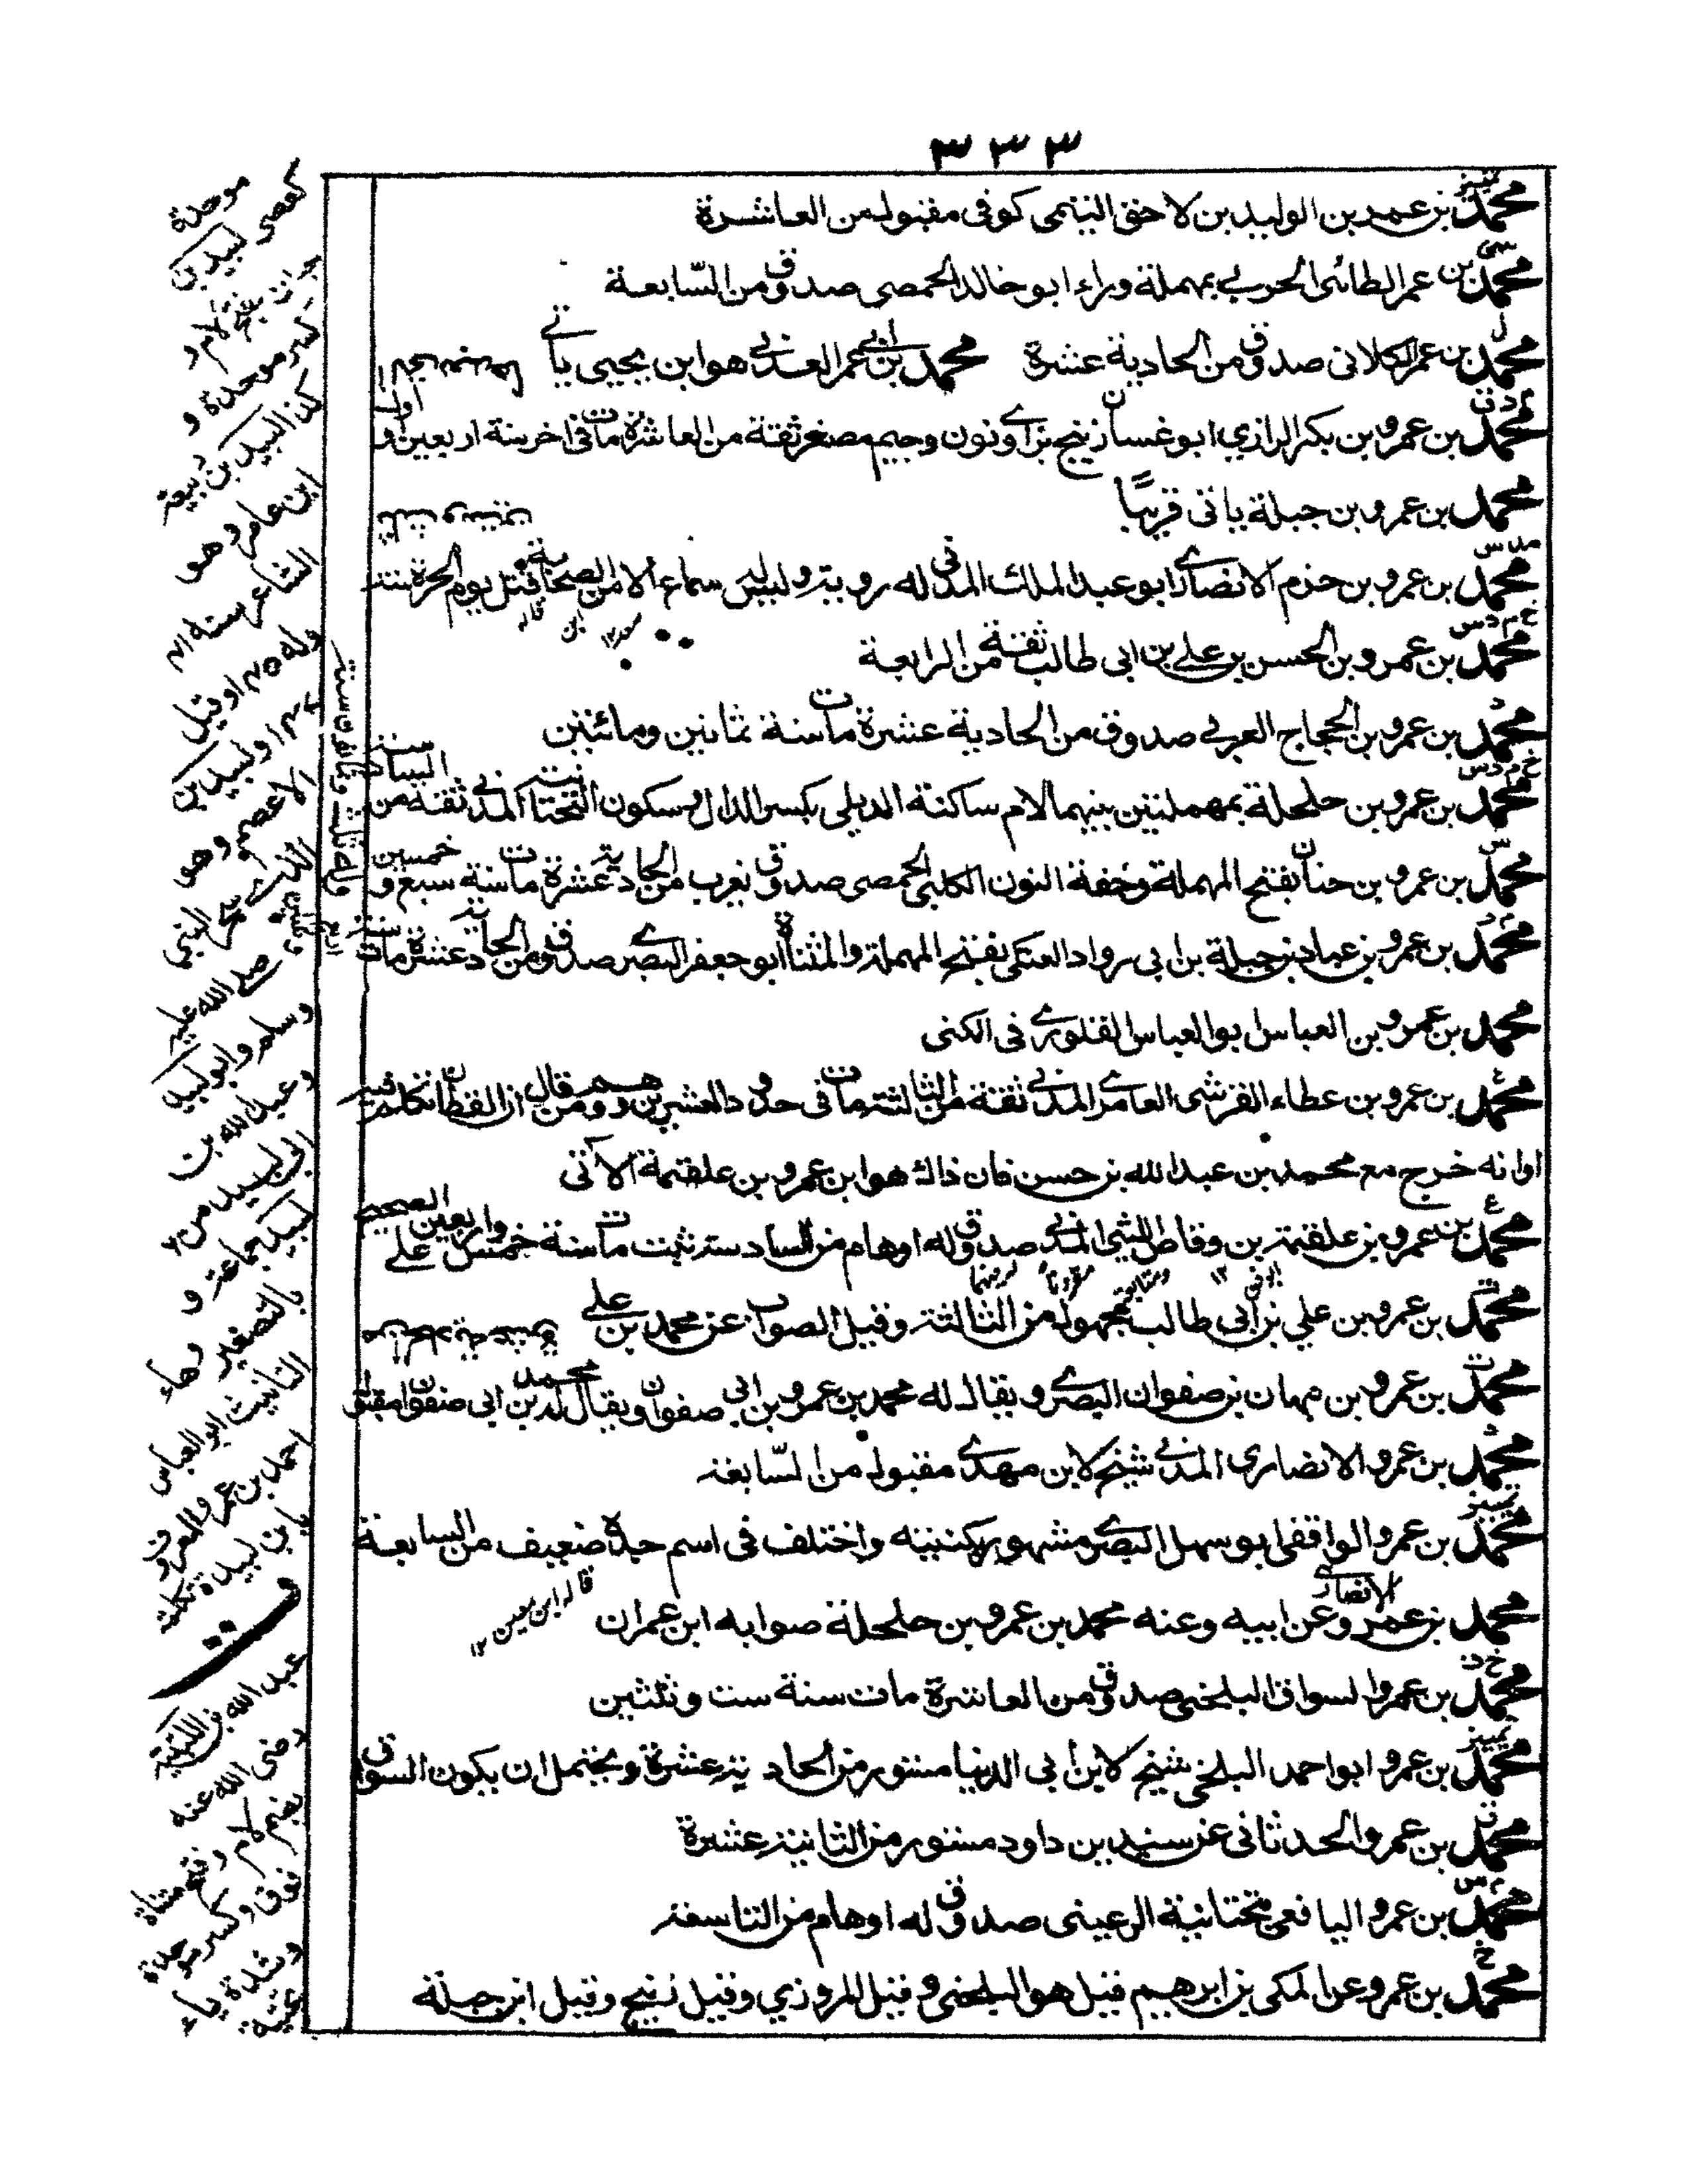 ٣٣٣
تمييز
محمد بن عمر بن الوليد بن لاحق التيمى كوفى مقبول من العاشرة
سى
محمد بن عمر الطائى الحربى بمهملة وراء ابو خالد الحمصى صدوق من السّابعة
ل
محمد بن عمر الكلابى صدوق من الحادية عشرة محمد بن ابى عمر العدنى هو ابن يحيى ياتى
م د ق
محمد بن عمرو بن بكر الرازي ابو غسان زنيج بزاى ونون وجيم مصغر ثقة من العاشرة مات فى اخر سنة اربعين او اول
محمد بن عمرو بن جبلة ياتى قريبًا
مد س
محمد بن عمرو بن حزم الانصارى ابو عبد الملك المدنى له روية وليس له سماع الا من الصحابة قتل يوم الحرة سنة
خ م د س
محمد بن عمرو بن الحسن بن على بن ابى طالب ثقة من الرابعة
د
محمد بن عمرو بن الحجاج العربى صدوق من الحادية عشرة مات سنة ثمانين ومائتين
خ م د س
محمد بن عمرو بن حلحلة بمهملتين بينهما لام ساكنة الديلى بكسر الدال وسكون التحتانية المدنى ثقة من السادسة
س
محمد بن عمرو بن حنان بفتح المهملة وخفة النون الكلبى الحمصى صدوق يغرب من الحادية عشرة مات سنة سبع وخمسين
م د
محمد بن عمرو بن عباد بن جبلة بن ابى رواد العتكى بفتح المهملة والمثناة ابو جعفر البصرى صدوق من الحادية عشرة مات سنة
محمد بن عمرو بن العباس ابو العباس القلورى فى الكنى
ع
محمد بن عمرو بن عطاء القرشى العامرى المدنى ثقة من الثالثة مات فى حدود العشرين ووهم من قال ان القطان تكلم فيه
او انه خرج مع محمد بن عبد الله بن حسن فان ذاك هو ابن عمرو بن علقمة الآتى
ع
محمد بن عمرو بن علقمة بن وقاص الليثى المدنى صدوق له اوهام من السادسة مات سنة خمس واربعين على الصحيح
محمد بن عمرو بن علي بن ابى طالب مجهول من الثالثة وقيل الصواب عن محمد بن على
ت
محمد بن عمرو بن نبهان بن صفوان البصرى ويقال له محمد بن عمرو بن ابى صفوان ويقال محمد بن ابى صفوان مقبول
د
محمد بن عمرو الانصارى المدنى شيخ لابن مهدى مقبول من السّابعة
تمييز
محمد بن عمرو الواقفى ابو سهل البصرى مشهور بكنيته واختلف فى اسم جده ضعيف من السابعة
محمد بن عمرو الانصارى عن ابيه وعنه محمد بن عمرو بن حلحلة صوابه ابن عمران
قاله ابن معين ١٢
محمد بن عمرو السواق البلخى صدوق من العاشرة مات سنة ست وثلثين
تمييز
محمد بن عمرو ابو احمد البلخى شيخ لابن ابى الدنيا مستور من الحادية عشرة ويحتمل ان يكون السواق
محمد بن عمرو الحدثانى عن سنيد بن داود مستور من الثانية عشرة
م س
محمد بن عمرو اليافعى بتحتانية الرعينى صدوق له اوهام من التاسعة
خ
محمد بن عمرو عن المكى بن ابرهيم قيل هو البلخى وقيل المروزي وقيل زنيج وقيل ابن جبلة
موحدة
كعصى لبيد بن
كسر موحدة و
كذا لبيد بن ربيعة
ابن عامر وهو
الشاعر سنة ٤١
الاعصم وهو
صلى الله عليه
وسلم وابو لبيد
وعبد الله بن
ابى لبيد من
لبيد جماعة و
بالتصغير وهاء
التانيث ابو العباس
احمد بن عمرو
عبد الله بن اللتبية
رضى الله عنه
بضم لام وفتح مثناة
فوق وكسر موحدة
وشدة ياء